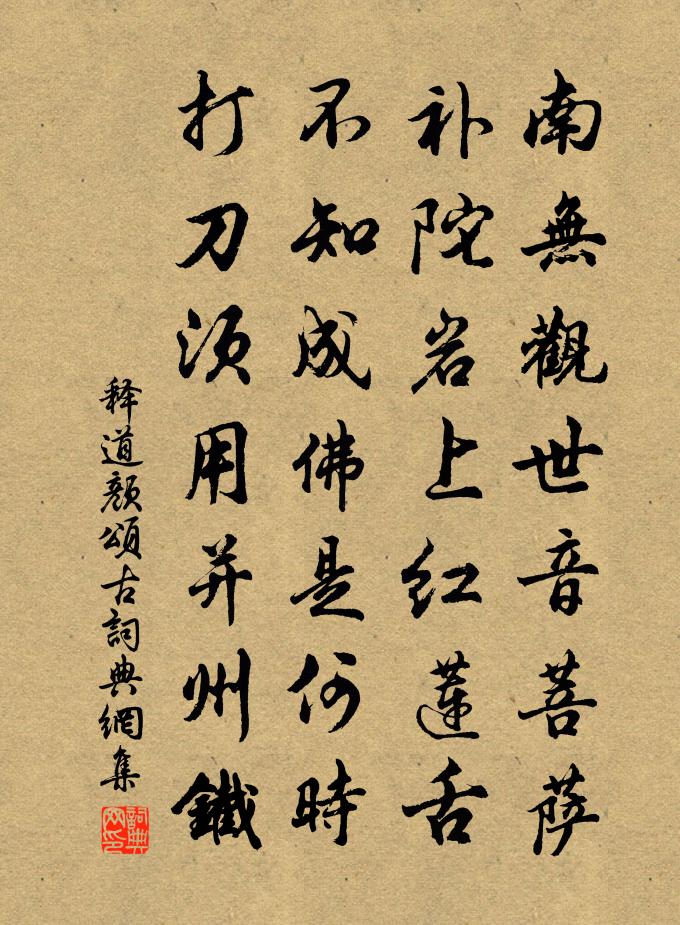 南無觀世音菩薩
补陀岩上红蓮舌
不知成佛是何時
打刀须用并州鐵
释道颜頌古詞典網集
詞典网印